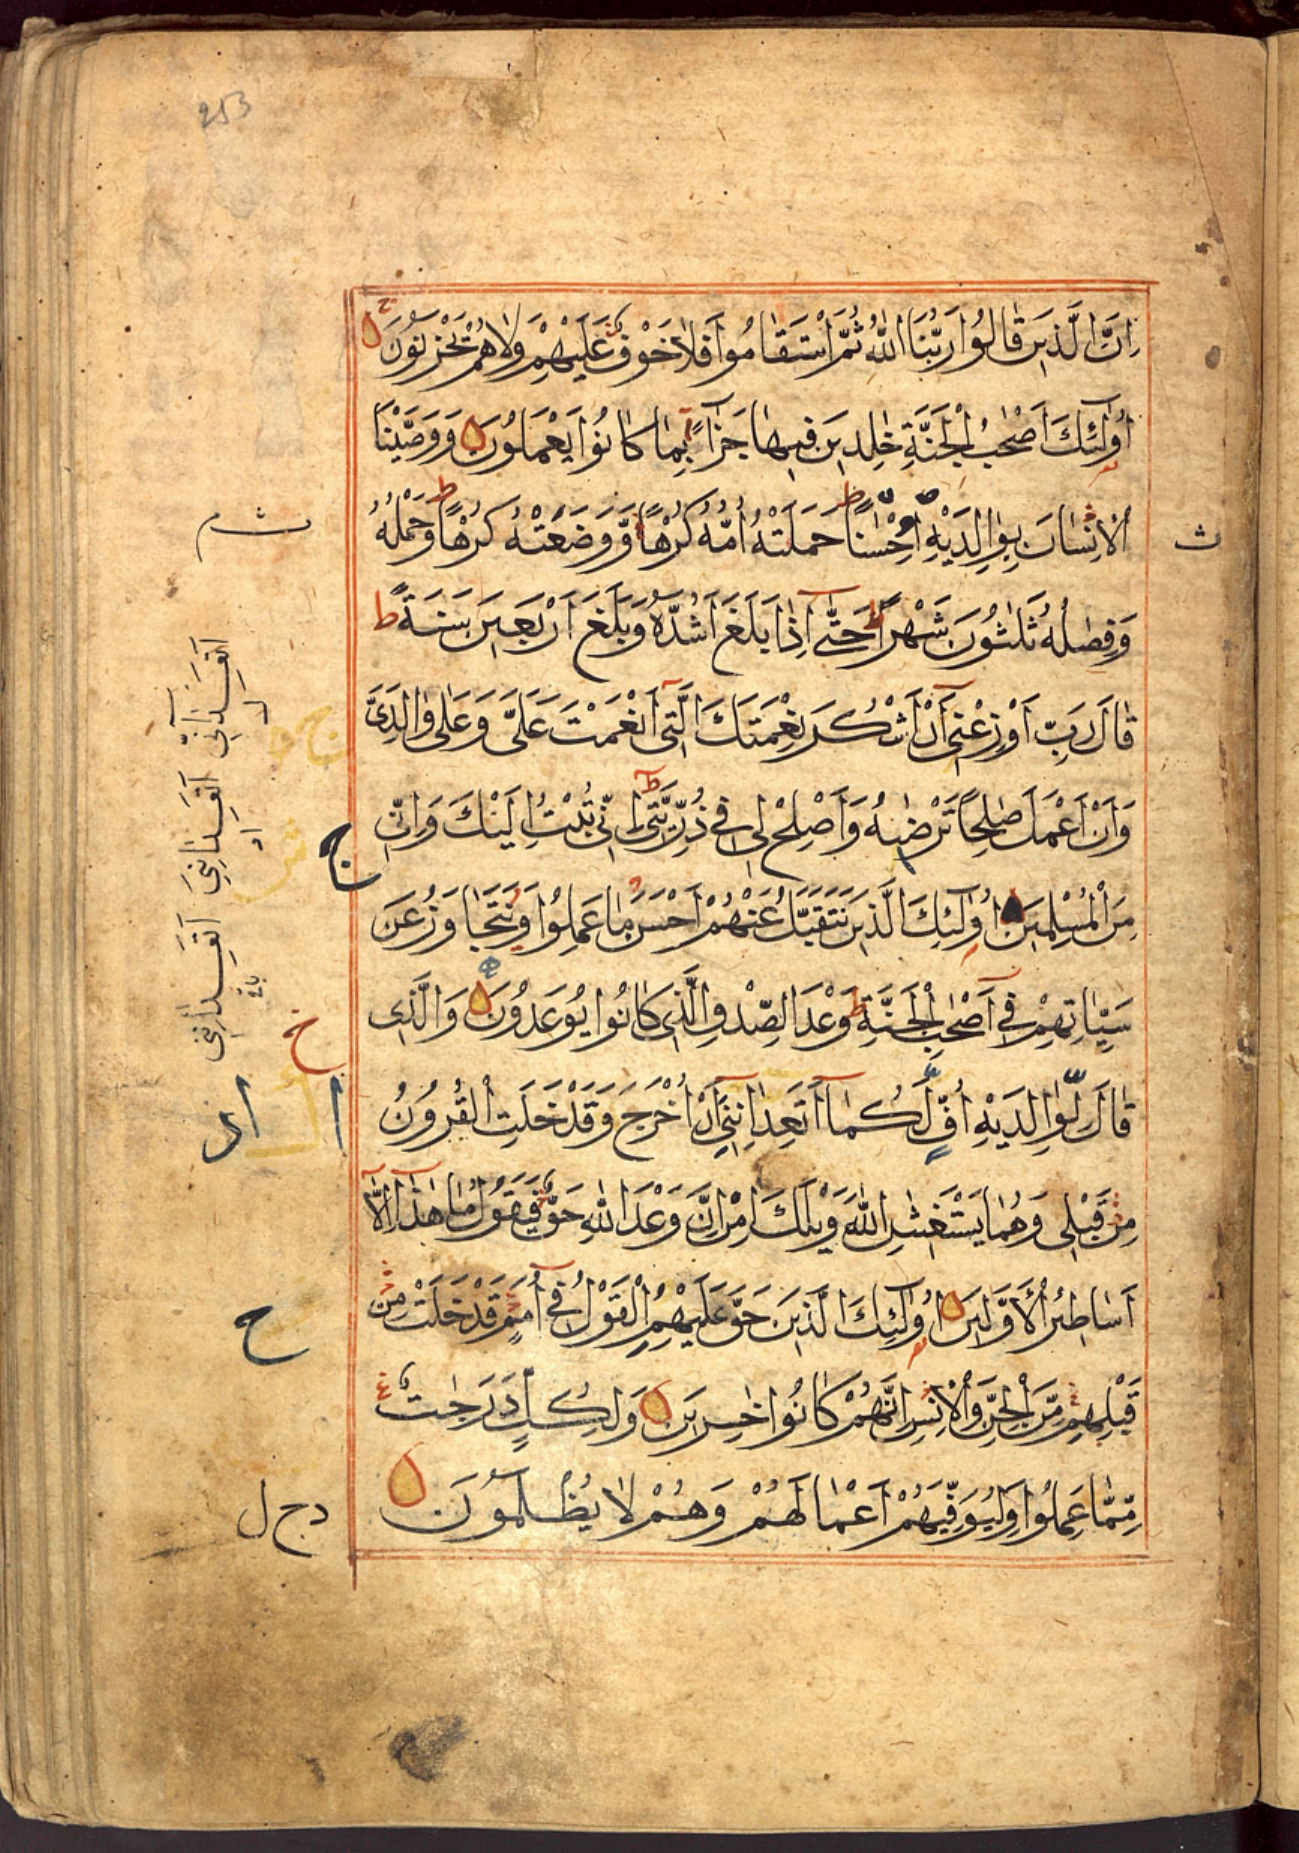 253
اِنَّ الَّذِينَ قَالُوا رَبُّنَا اللّٰهُ ثُمَّ اسْتَقَامُوا فَلَا خَوْفٌ عَلَيْهِمْ وَلَا هُمْ يَحْزَنُونَ
ح
أُولٰٓئِكَ اَصْحٰبُ الْجَنَّةِ خٰلِدِينَ فِيهَا جَزَآءً بِمَا كَانُوا يَعْمَلُونَ وَوَصَّيْنَا
الْاِنْسَانَ بِوَالِدَيْهِ اِحْسٰنًا ط حَمَلَتْهُ اُمُّهُ كُرْهًا وَّوَضَعَتْهُ كُرْهًا ط وَحَمْلُهُ
ث
وَفِصٰلُهُ ثَلٰثُونَ شَهْرًا ط حَتّٰٓى اِذَا بَلَغَ اَشُدَّهُ وَبَلَغَ اَرْبَعِينَ سَنَةً ط
قَالَ رَبِّ اَوْزِعْنِىٓ اَنْ اَشْكُرَ نِعْمَتَكَ الَّتِىٓ اَنْعَمْتَ عَلَىَّ وَعَلٰى وَالِدَىَّ
وَاَنْ اَعْمَلَ صٰلِحًا تَرْضٰىهُ وَاَصْلِحْ لِى فِى ذُرِّيَّتِىٓ ط اِنِّى تُبْتُ اِلَيْكَ وَاِنِّى
مِنَ الْمُسْلِمِينَ اُولٰٓئِكَ الَّذِينَ نَتَقَبَّلُ عَنْهُمْ اَحْسَنَ مَا عَمِلُوا وَنَتَجَاوَزُ عَنْ
سَيِّاٰتِهِمْ فِىٓ اَصْحٰبِ الْجَنَّةِ ط وَعْدَ الصِّدْقِ الَّذِى كَانُوا يُوعَدُونَ وَالَّذِى
خ
قَالَ لِوَالِدَيْهِ اُفٍّ لَّكُمَآ اَتَعِدَانِنِىٓ اَنْ اُخْرَجَ وَقَدْ خَلَتِ الْقُرُونُ
مِنْ قَبْلِى وَهُمَا يَسْتَغِيثٰنِ اللّٰهَ وَيْلَكَ اٰمِنْ اِنَّ وَعْدَ اللّٰهِ حَقٌّ فَيَقُولُ مَا هٰذَآ اِلَّآ
اَسَاطِيرُ الْاَوَّلِينَ اُولٰٓئِكَ الَّذِينَ حَقَّ عَلَيْهِمُ الْقَوْلُ فِىٓ اُمَمٍ قَدْ خَلَتْ مِنْ
ح
قَبْلِهِمْ مِّنَ الْجِنِّ وَالْاِنْسِ اِنَّهُمْ كَانُوا خٰسِرِينَ وَلِكُلٍّ دَرَجٰتٌ
مِّمَّا عَمِلُوا وَلِيُوَفِّيَهُمْ اَعْمَالَهُمْ وَهُمْ لَا يُظْلَمُونَ
د ح ل